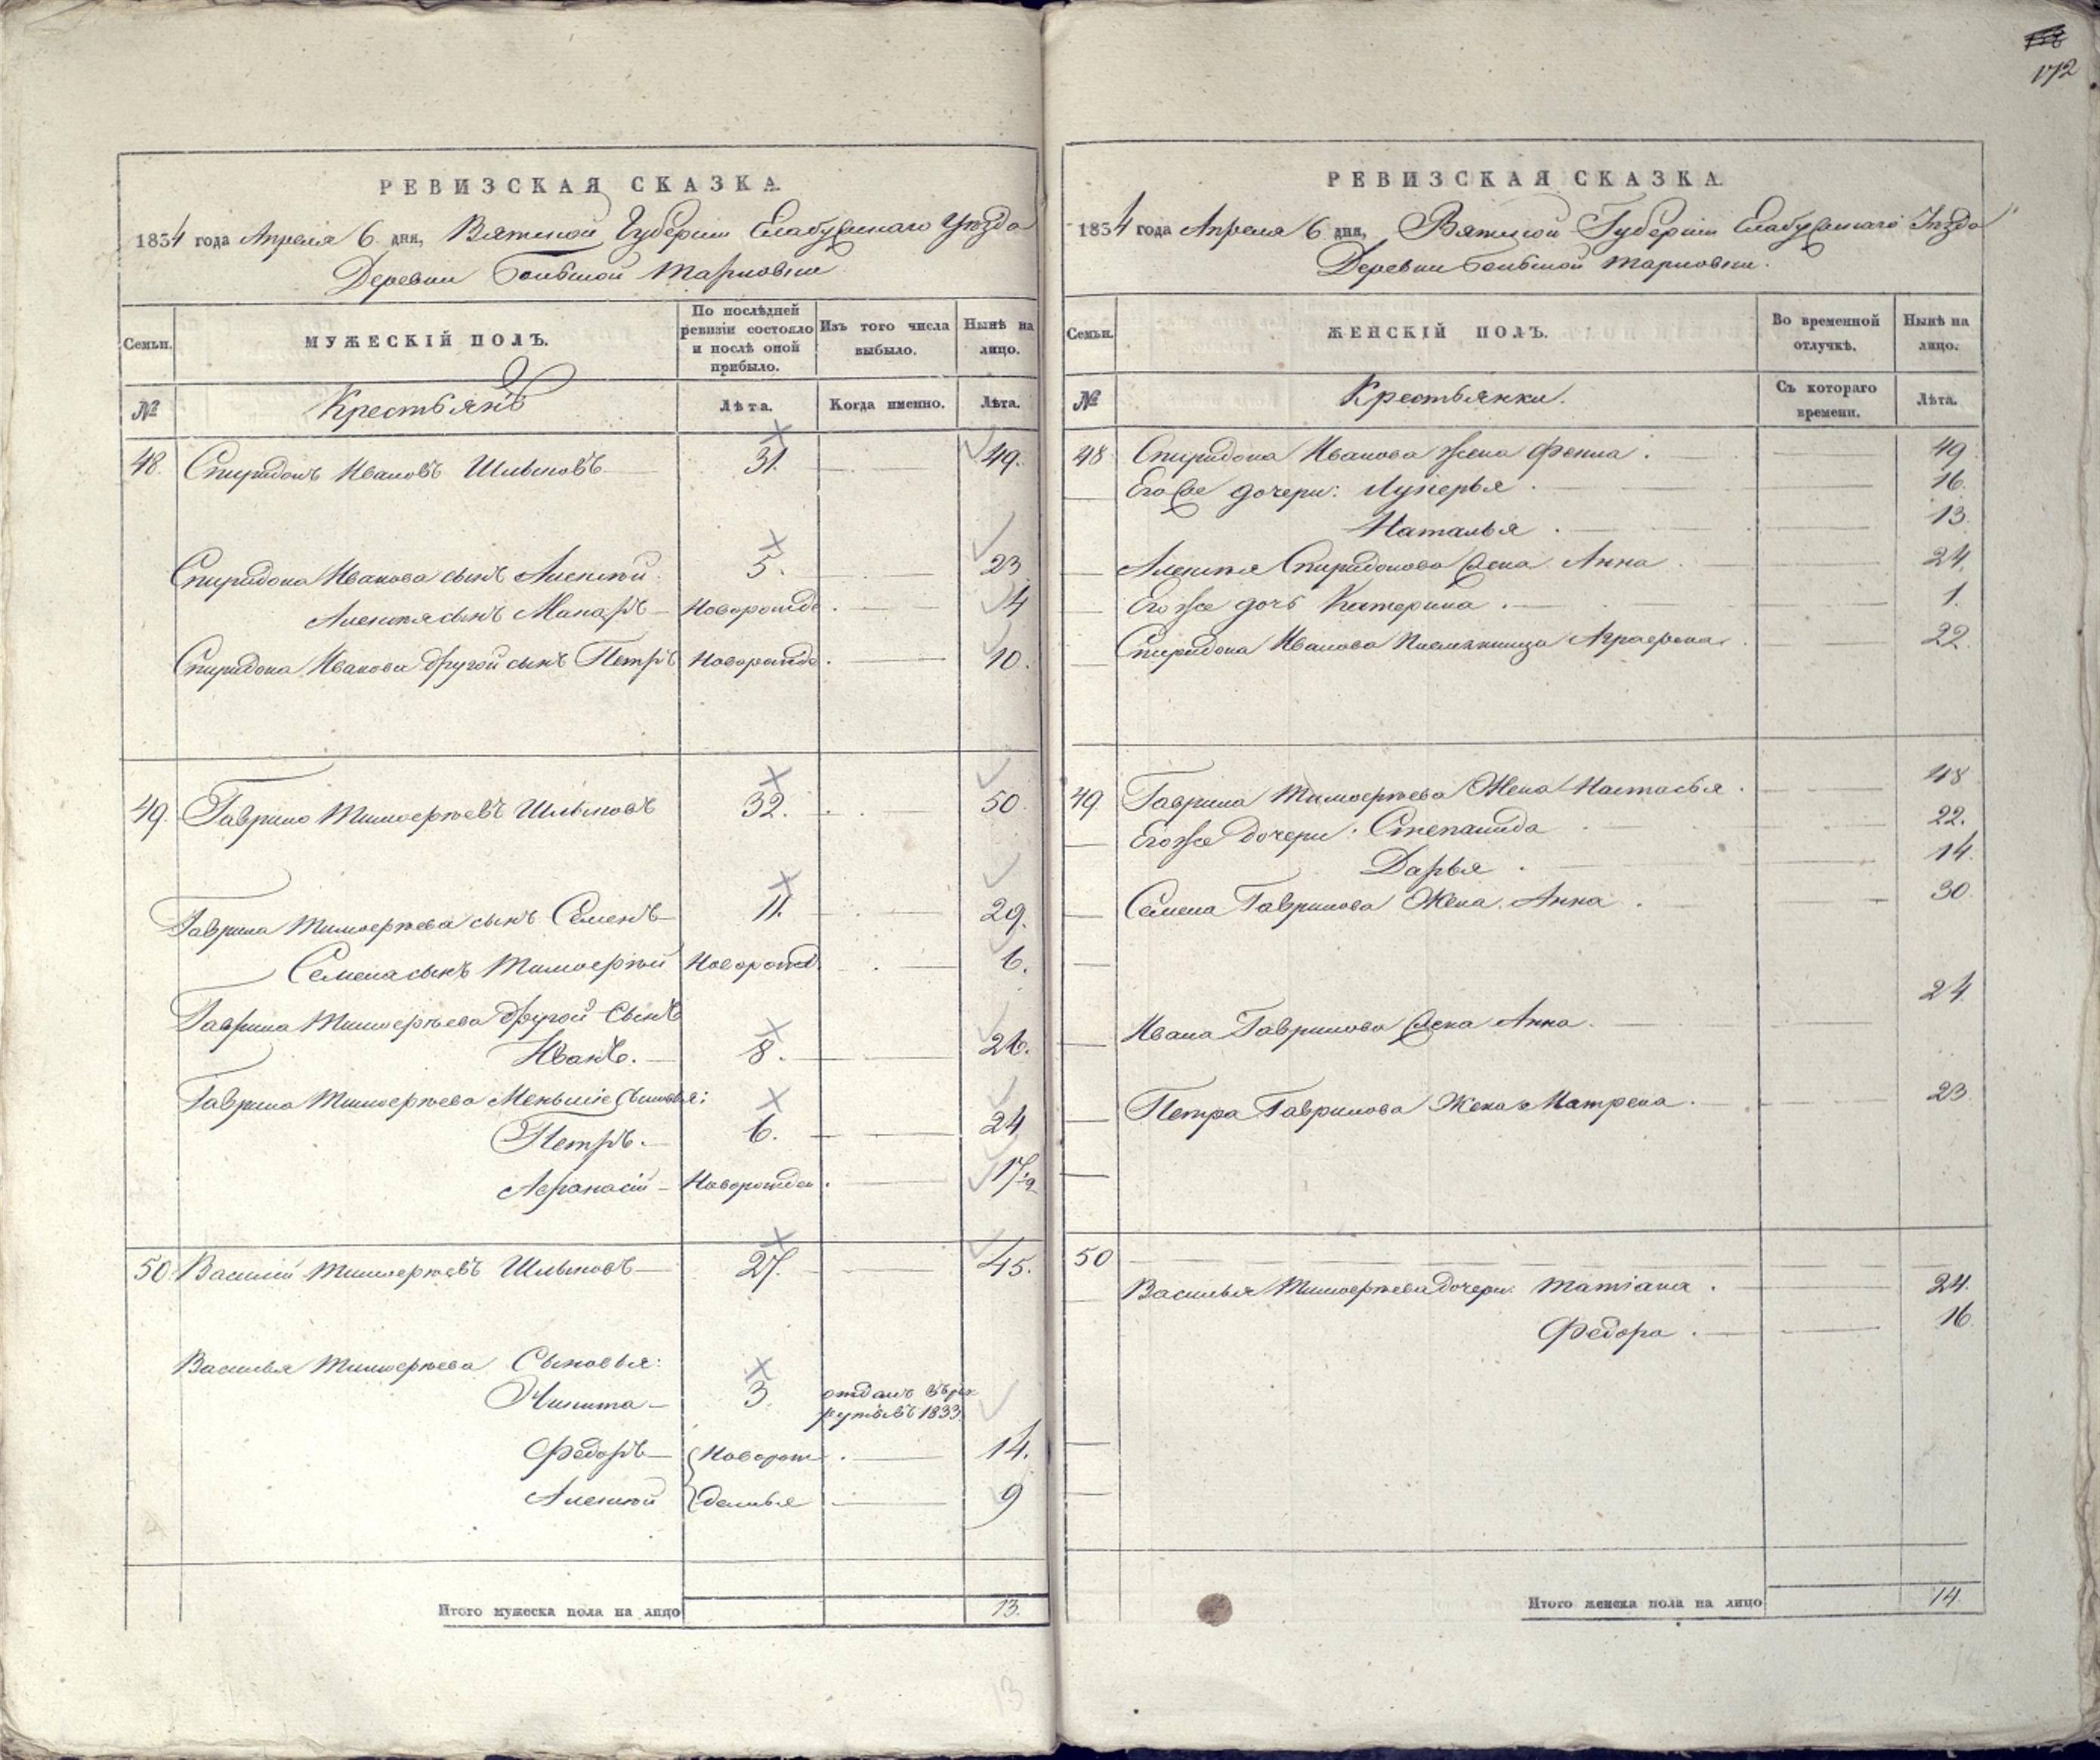 172
РЕВИЗСКАЯ СКАЗКА
1834 года Апреля 6 дня, Вятской Губерніи Елабужскаго Уѣзда
Деревни Большой Тарловки
Семьи.
МУЖЕСКІЙ ПОЛЪ.
По послѣдней ревизіи состояло и послѣ оной прибыло.
Изъ того числа выбыло.
Нынѣ на лицо.
№ Крестьянъ Лѣта. Когда именно. Лѣта.
48. Спиридонъ Ивановъ Шлыковъ 31. 49.
Спиридона Иванова сынъ Алексѣй 5. 23
Алексѣя сынъ Макаръ Новорожде. 4
Спиридона Иванова другой сынъ Петръ Новорожде. 10.
49. Гаврило Тимоѳеевъ Шлыковъ 32. 50
Гаврила Тимоѳеева сынъ Семенъ 11. 29.
Семена сынъ Тимоѳей Новорожд. 6.
Гаврила Тимоѳеева другой сынъ
Иванъ. 8. 26.
Гаврила Тимоѳеева Меньшіе сыновья:
Петръ. 6. 24
Афанасій Новорожден. 17 1/2
50 Василій Тимоѳеевъ Шлыковъ 27. 45.
Василья Тимоѳеева Сыновья:
Никита 3. отданъ въ рек
рутывъ 1833
Федоръ Новорож 14.
Алексѣй денныя 9
Итого мужеска пола на лицо 13.
РЕВИЗСКАЯ СКАЗКА
1834 года Апреля 6 дня, Вятской Губерніи Елабужскаго Уѣзда
Деревни Большой Тарловки.
Семьи.
ЖЕНСКІЙ ПОЛЪ.
Во временной отлучкѣ.
Нынѣ на лицо.
№ Крестьянки. Съ котораго времени. Лѣта.
48 Спиридона Иванова жена Фекла. 49
Его же дочери: Лукерья. 16.
Наталья. 13
Алексѣя Спиридонова жена Анна. 24.
Его же дочь Катерина. 1.
Спиридона Иванова племянница Аграфена. 22.
49 Гаврила Тимоѳеева Жена Настасья. 48
Его же дочери: Степанида 22.
Дарья. 14.
Семена Гаврилова Жена Анна. 30
Ивана Гаврилова жена Анна. 24
Петра Гаврилова Жена Матрена. 23
50
Василья Тимоѳеева дочери: Татіана. 24.
Федора. 16
Итого женска пола на лицо 14.
13